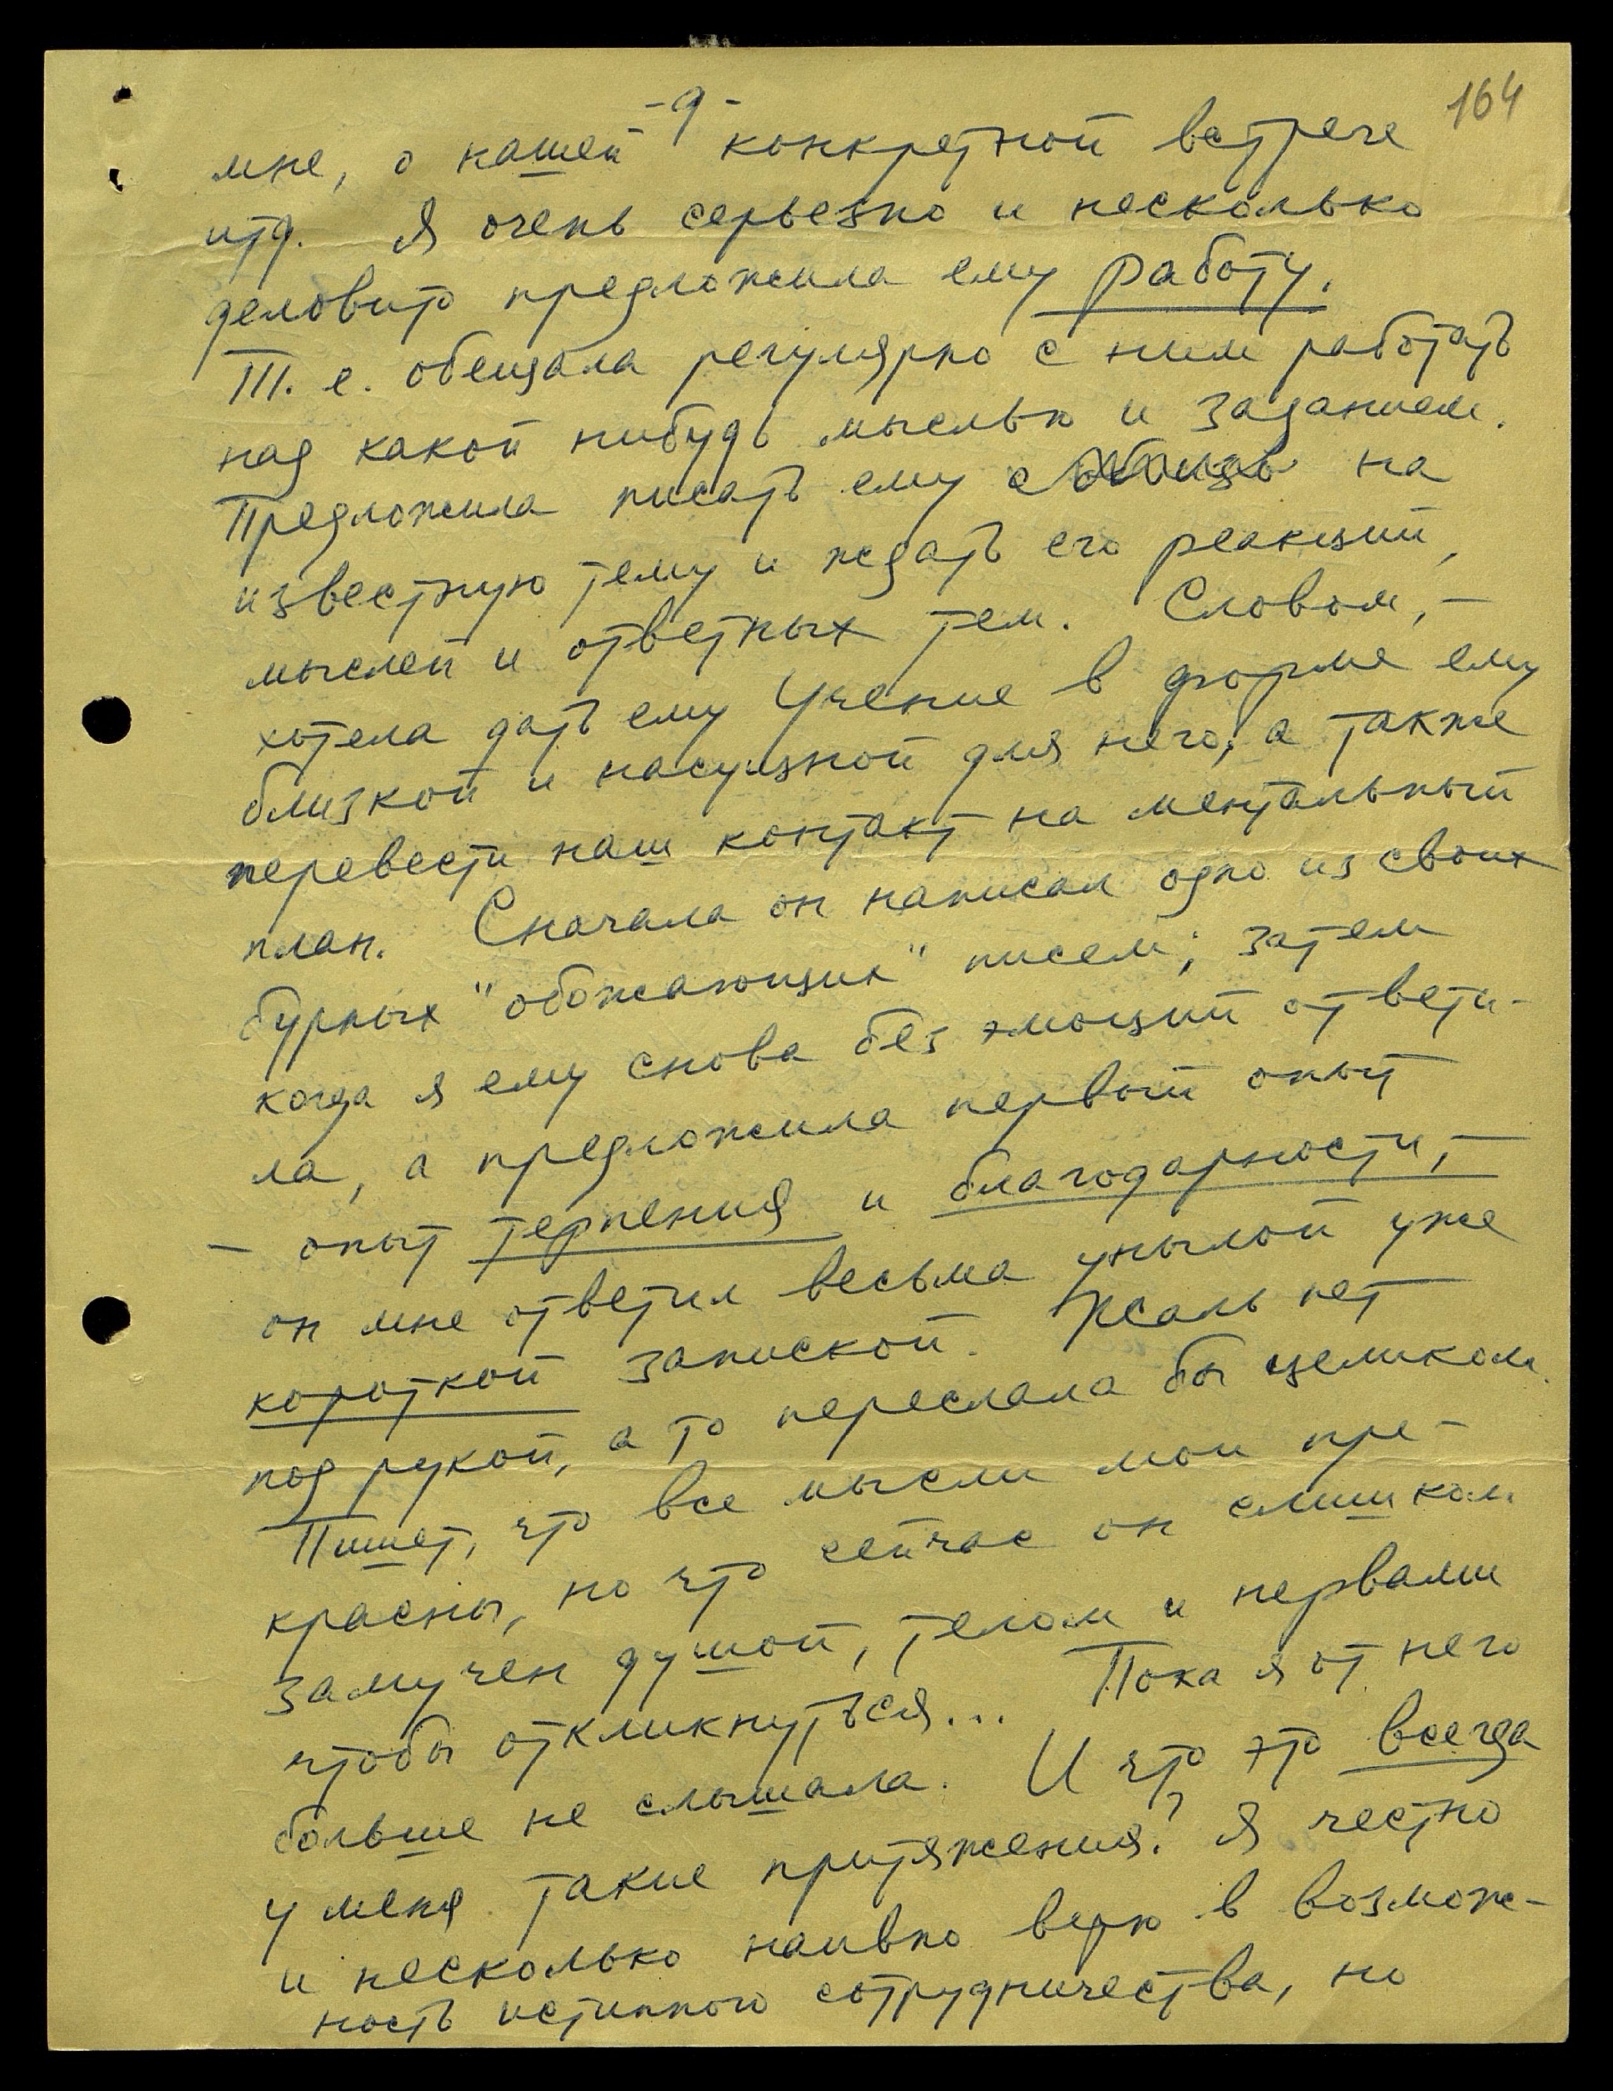 164
-9-
мне, о нашей конкретной встрече
итд. Я очень серьезно и несколько
деловито предложила ему работу.
Т. е. обещала регулярно с ним работать
над какой нибудь мыслью и заданием.
Предложила писать ему на
известную тему и ждать его реакций,
мыслей и ответных тем. Словом, –
хотела дать ему Учение в форме ему
близкой и насущной для него, а также
перевести наш контакт на ментальный
план. Сначала он написал одно из своих
бурных "обожающих" писем; затем
когда я ему снова без эмоций ответи-
ла, а предложила первый опыт
– опыт терпения и благодарности, –
он мне ответил весьма унылой уже
короткой запиской. Жаль нет
под рукой, а то переслала бы целиком.
Пишет, что все мысли мои пре-
красны, но что сейчас он слишком
замучен душой, телом и нервами
чтобы откликнуться... Пока я от него
больше не слышала. И что это всегда
у меня такие притяжения? Я честно
и несколько наивно верю в возмож-
ность истинного сотрудничества, но